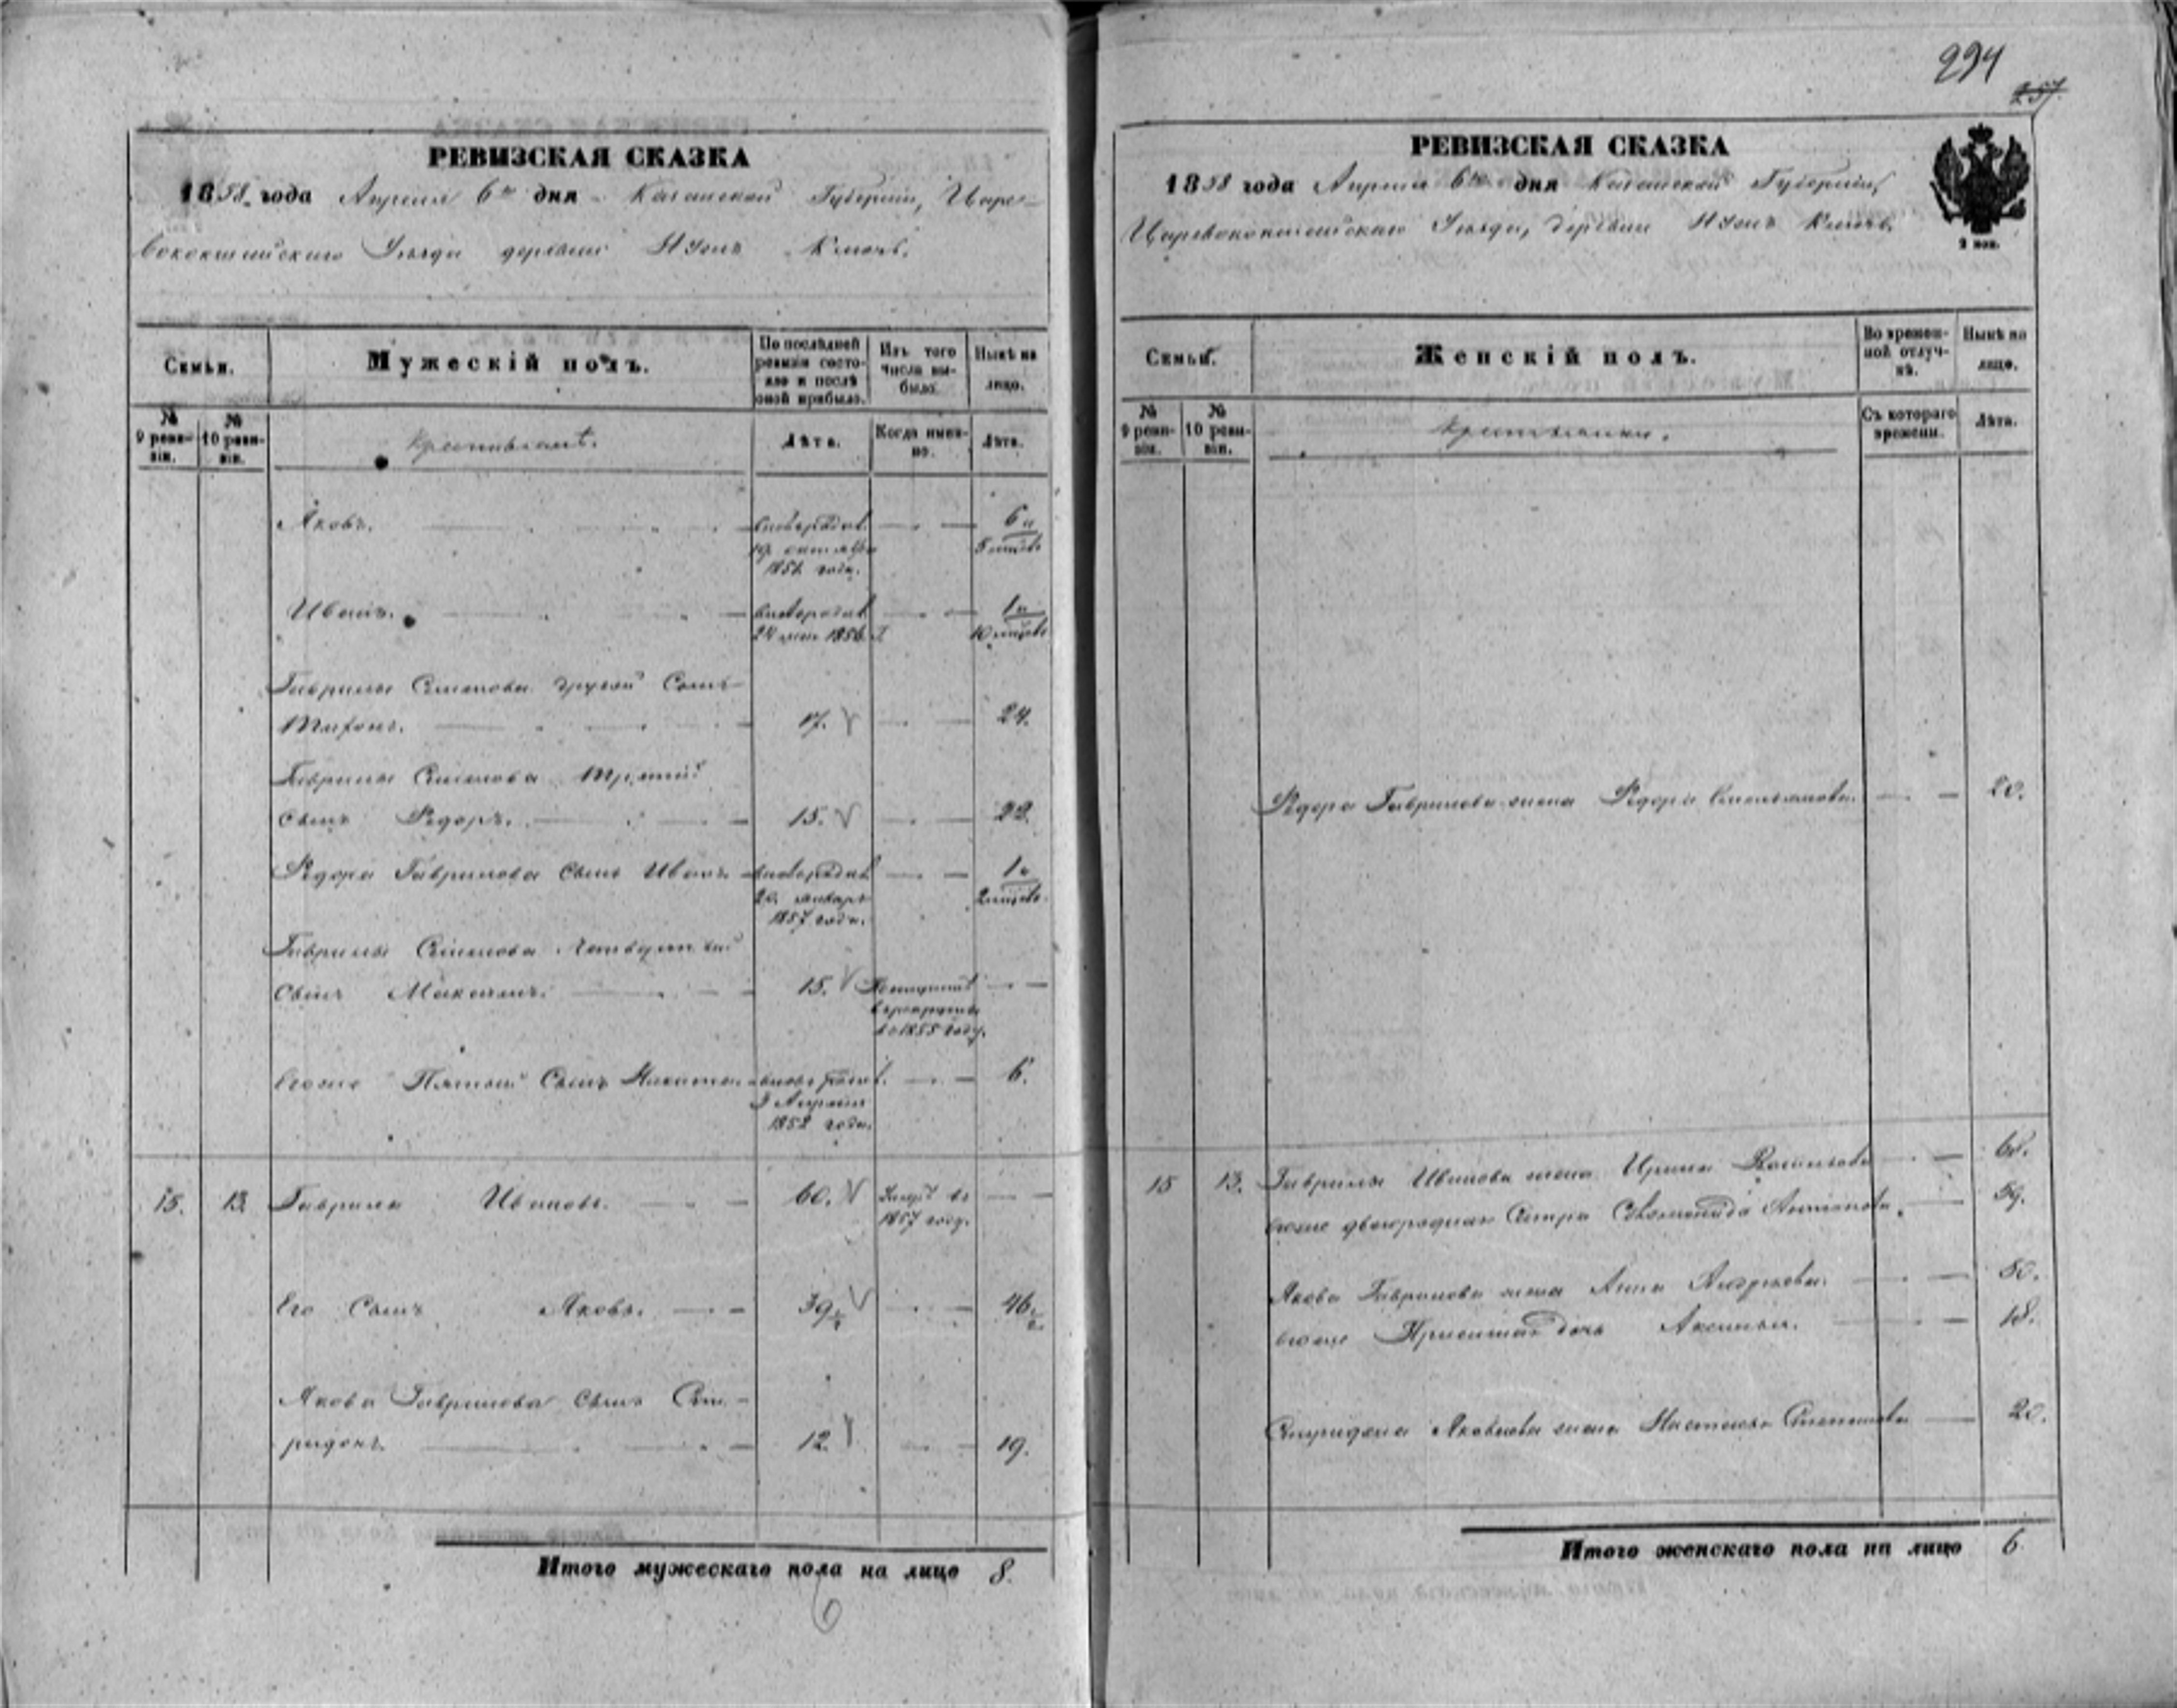 РЕВИЗСКАЯ СКАЗКА
1858 года Апреля 6го дня Казанской Губерніи, Царе-
вококшайскаго Уѣзда деревни Ключь.
Семьи.
Мужескій полъ.
По послѣдней ревизіи состояло и послѣ оной прибыло.
Изъ того числа выбыло.
Нынѣ на лицо.
№ 9 ревизіи.
№ 10 ревизіи.
Крестьяне.
Лѣта.
Когда именно.
Лѣта.
Яковъ. 6 и
октября 5 мѣсяцъ
года.
Иванъ. 1 и
24 1856 г 10 мѣсяцъ
Гаврилы Семенова другой Сынъ
Тифонъ. 17. 24.
Гаврилы Семенова третій
Сынъ Ѳедоръ. 15. 22.
Ѳедора Гаврилова Сынъ Иванъ 1 и
20 января 2 мѣсяцъ
1857 года.
Гаврилы Семенова Четвертый
Сынъ Максимъ. 15.
в рекруты
в 1855 году.
Егоже Пятый Сынъ Никита 6.
3 Апреля
1852 года.
15. 13. Гаврила Ивановъ. 60. Умеръ въ
1857 году.
Его Сынъ Яковъ. 39 46
Якова Гаврилова Сынъ Спи-
ридонъ. 12. 19.
Итого мужескаго пола на лицо 8.
6
294
257.
РЕВИЗСКАЯ СКАЗКА
1858 года Апреля 6го дня Казанской Губерніи,
Царевококшайскаго Уѣзда, деревни Ключь.
2 коп.
Семьи.
Женскій полъ.
Во временной отлучкѣ.
Нынѣ на лицо.
№ 9 ревизіи.
№ 10 ревизіи.
Крестьянки.
Съ котораго времени.
Лѣта.
Ѳедора Гаврилова жена Ѳедора Емельянова. 20.
15 13. Гаврилы Иванова жена Ирина Васильева 60.
Егоже двоюродная Сестра Антонова. 59.
Якова Гаврилова жена Анна Андреева. 50.
Егоже Пріемная дочь Аксинья. 18.
Спиридона Яковлева жена Настасья Степанова 20.
Итого женскаго пола на лицо 6